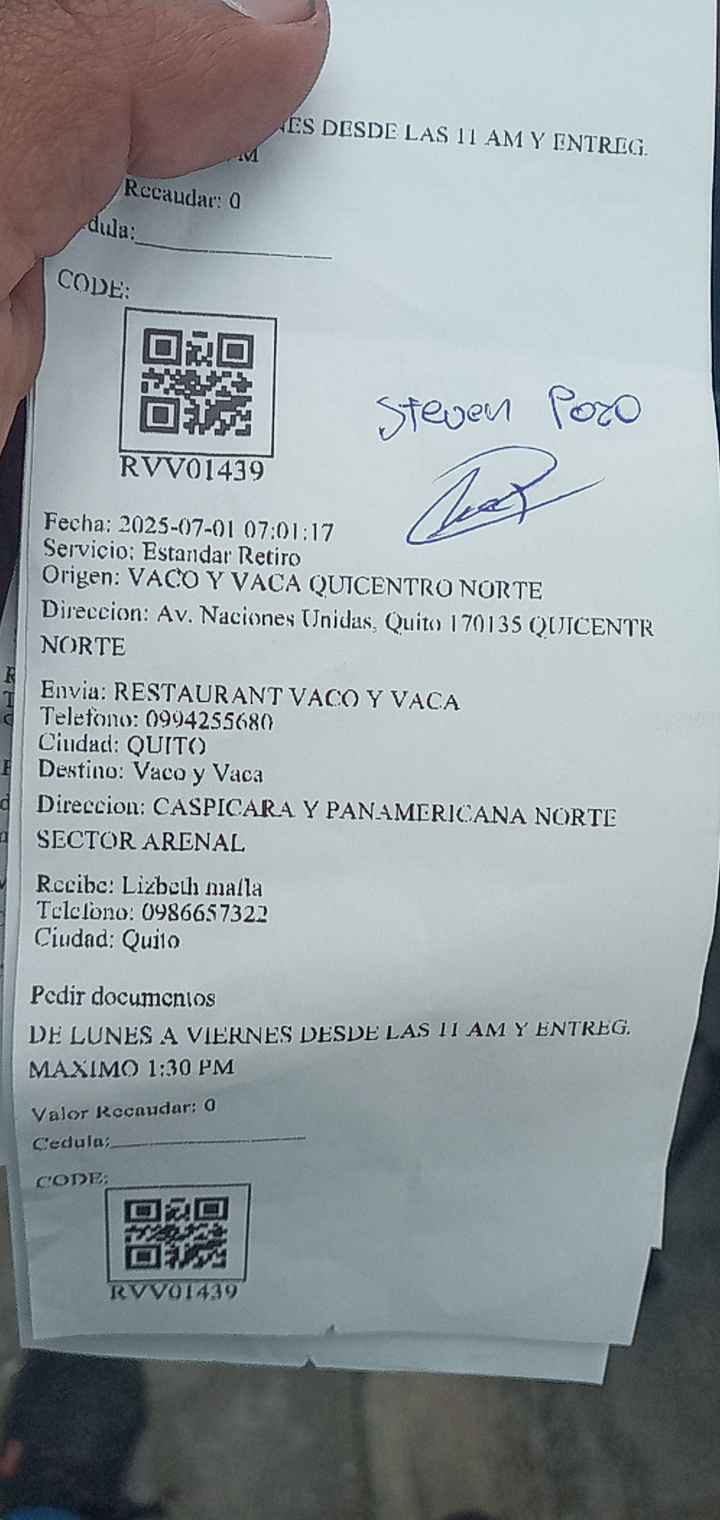 NES DESDE LAS 11 AM Y ENTREG.
M
Recaudar: 0
dula:
CODE:
RVV01439
Steven Pozo
Fecha: 2025-07-01 07:01:17
Servicio: Estandar Retiro
Origen: VACO Y VACA QUICENTRO NORTE
Direccion: Av. Naciones Unidas, Quito 170135 QUICENTR
NORTE
Envia: RESTAURANT VACO Y VACA
Telefono: 0994255680
Ciudad: QUITO
Destino: Vaco y Vaca
Direccion: CASPICARA Y PANAMERICANA NORTE
SECTOR ARENAL
Recibe: Lizbeth mafla
Telefono: 0986657322
Ciudad: Quito
Pedir documentos
DE LUNES A VIERNES DESDE LAS 11 AM Y ENTREG.
MAXIMO 1:30 PM
Valor Recaudar: 0
Cedula:
CODE:
RVV01439